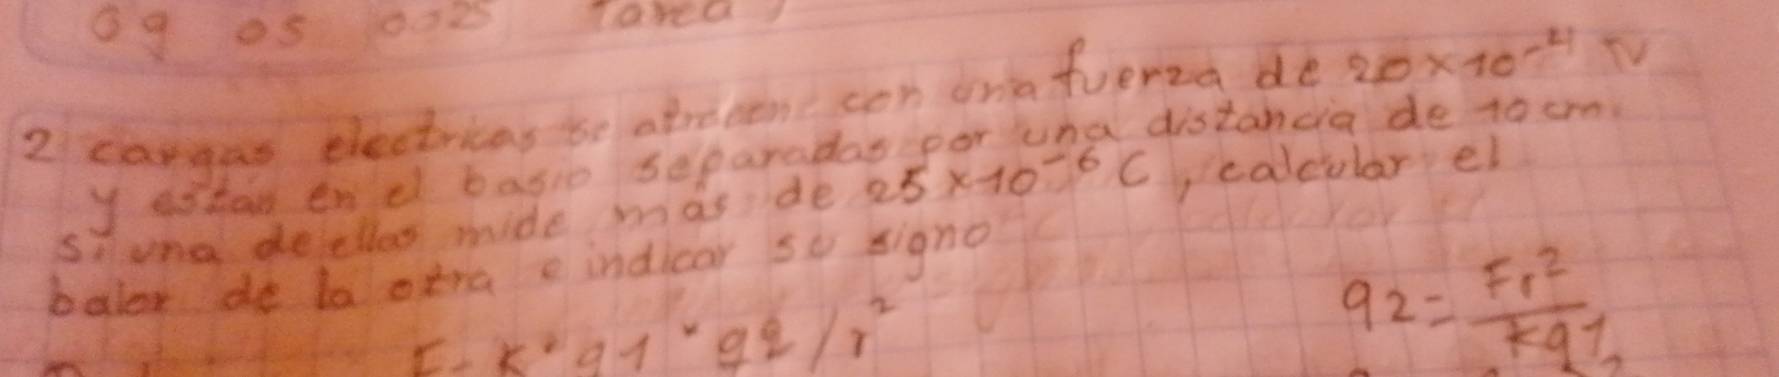 09 05 0025 Tarea 1
2 cargas electricas se atraen con una fuerza de 20×10⁻⁴ N
y estan en el basio separadas por una distancia de 10 cm.
si una de ellas mide mas de 25×10⁻⁶ C, calcular el
balor de la otra e indicar su signo
F= K*q1*q2/r²
q2= Fr²/kq1